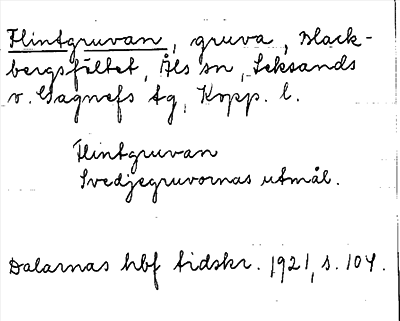 Flintgruvan, gruva, Black-
bergsfältet, Åls sn, Leksands
o. Gagnefs tg, Kopp. l.
Flintgruvan
Svedjegruvornas utmål.
Dalarnas hbf tidskr. 1921, s. 104.